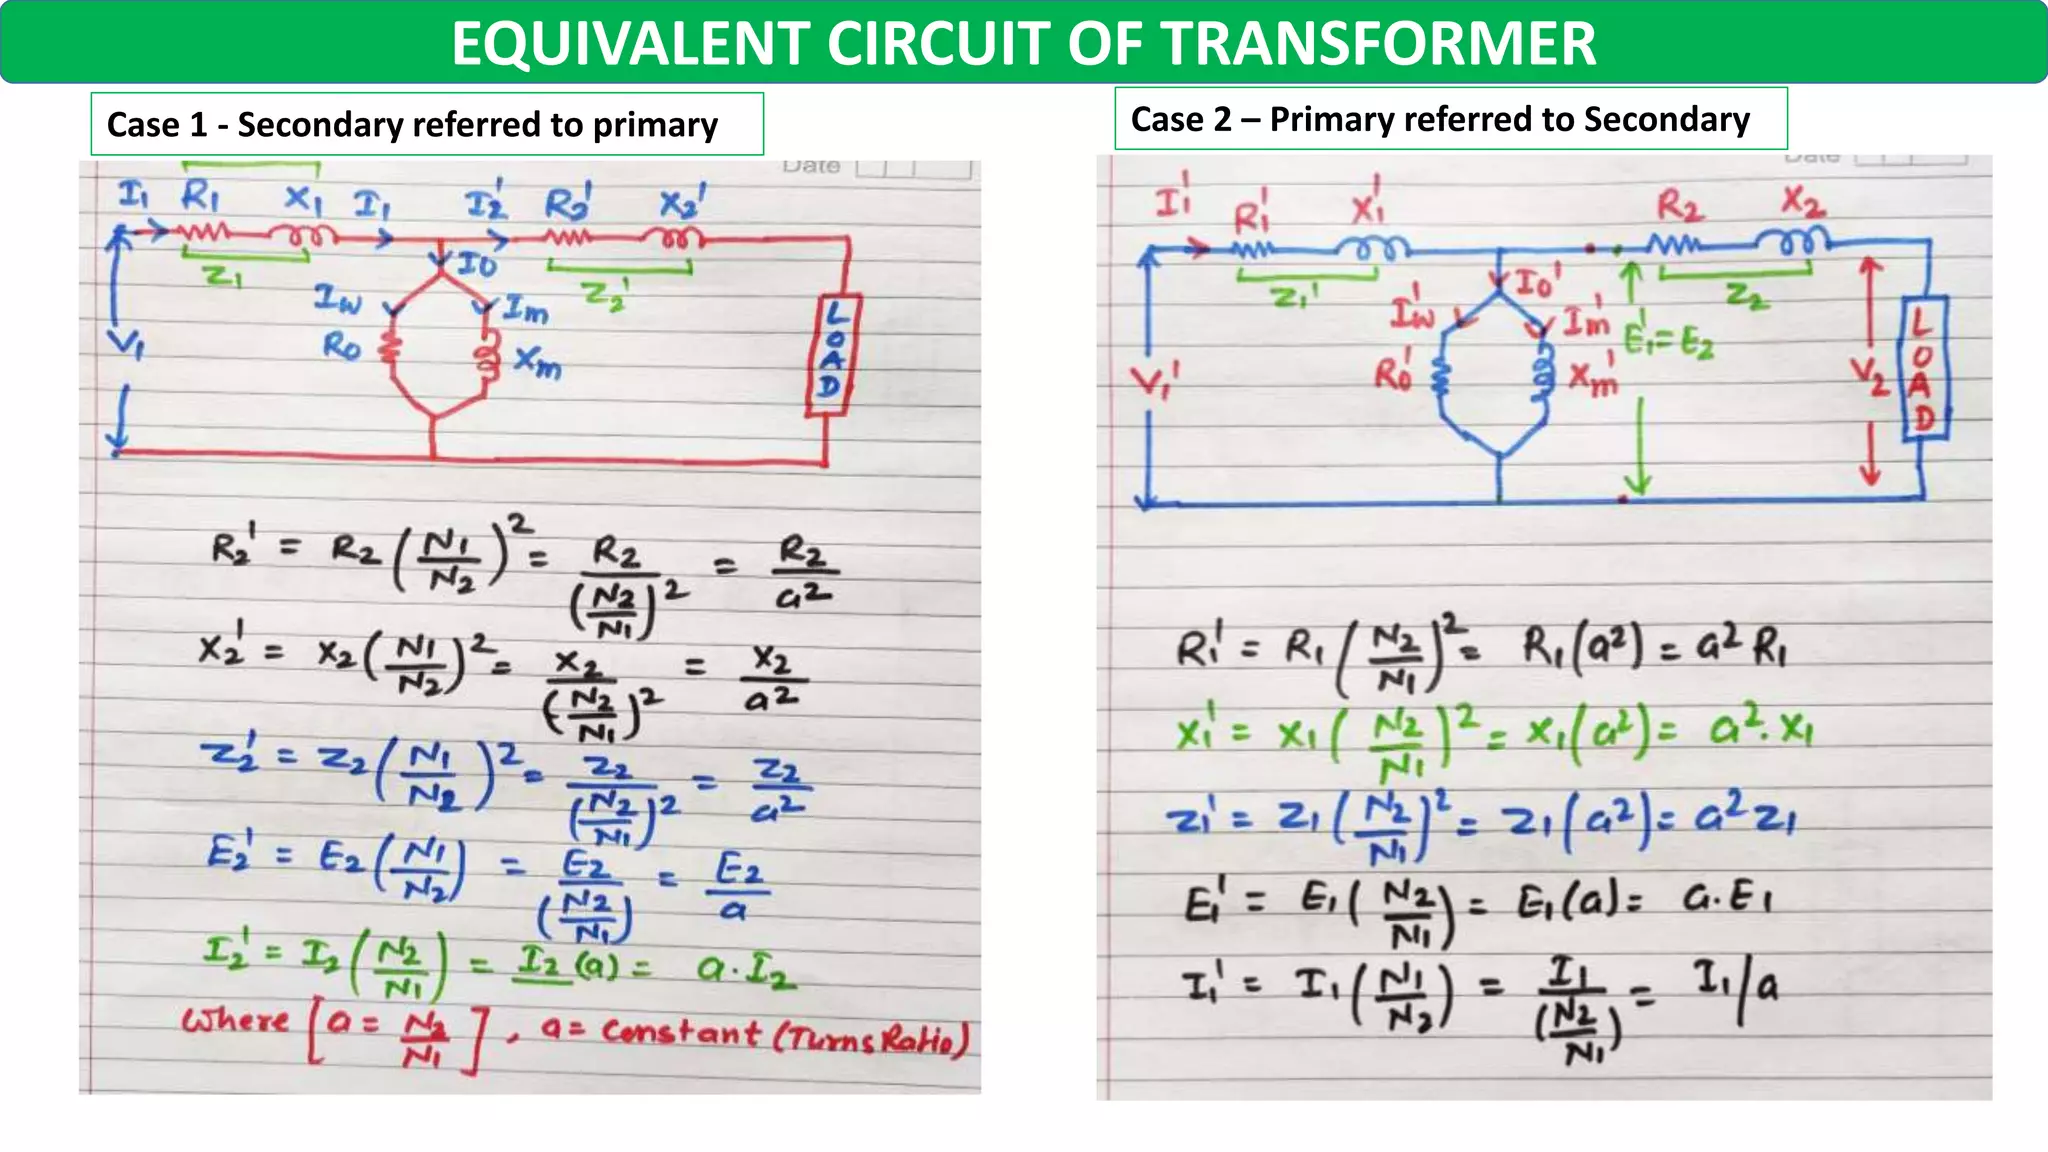 EQUIVALENT CIRCUIT OF TRANSFORMER
Case 1 - Secondary referred to primary
Date
I₁ R₁ X₁ I₁ I₂' R₂' X₂'
Z₁ I₀ Z₂'
Iw Im
V₁ R₀ Xm LOAD
R₂' = R₂ (N₁/N₂)² = R₂/(N₂/N₁)² = R₂/a²
X₂' = X₂ (N₁/N₂)² = X₂/(N₂/N₁)² = X₂/a²
Z₂' = Z₂ (N₁/N₂)² = Z₂/(N₂/N₁)² = Z₂/a²
E₂' = E₂ (N₁/N₂) = E₂/(N₂/N₁) = E₂/a
I₂' = I₂ (N₂/N₁) = I₂ (a) = a · I₂
Where [a = N₂/N₁], a = Constant (Turns Ratio)
Case 2 – Primary referred to Secondary
Date
I₁' R₁' X₁' R₂ X₂
Z₁' I₀' Z₂
Iw' Im' E₁' = E₂
V₁' R₀' Xm' V₂ LOAD
R₁' = R₁ (N₂/N₁)² = R₁ (a²) = a² R₁
X₁' = X₁ (N₂/N₁)² = X₁ (a²) = a² · X₁
Z₁' = Z₁ (N₂/N₁)² = Z₁ (a²) = a² Z₁
E₁' = E₁ (N₂/N₁) = E₁ (a) = a · E₁
I₁' = I₁ (N₁/N₂) = I₁/(N₂/N₁) = I₁/a